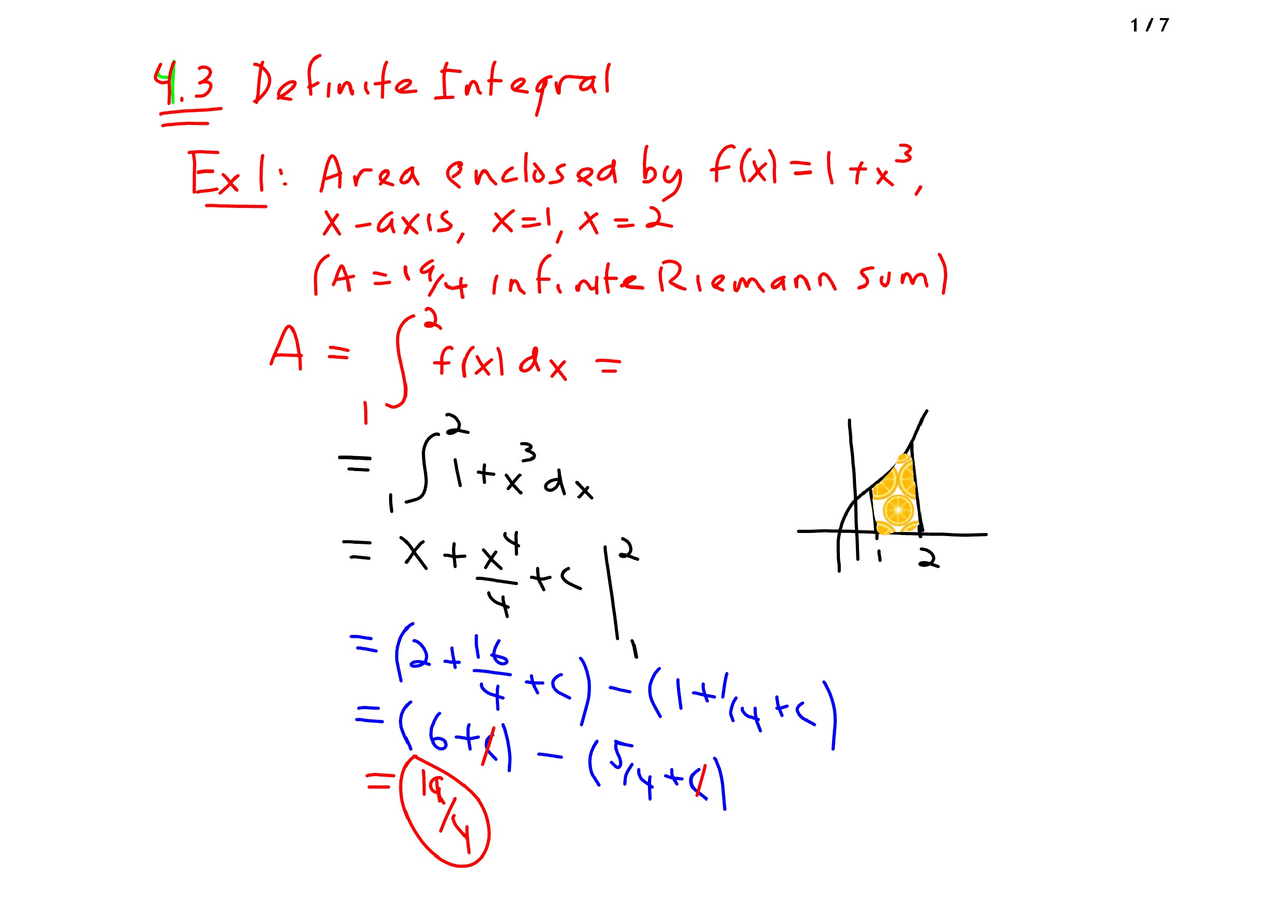 1 / 7
4.3 Definite Integral
Ex 1: Area enclosed by f(x) = 1 + x³,
x-axis, x=1, x=2
(A = 19/4 infinite Riemann sum)
A = ∫₁² f(x) dx =
= ∫₁² 1 + x³ dx
= x + x⁴/4 + c |₁²
1 2
= (2 + 16/4 + c) - (1 + 1/4 + c)
= (6 + c) - (5/4 + c)
= 19/4